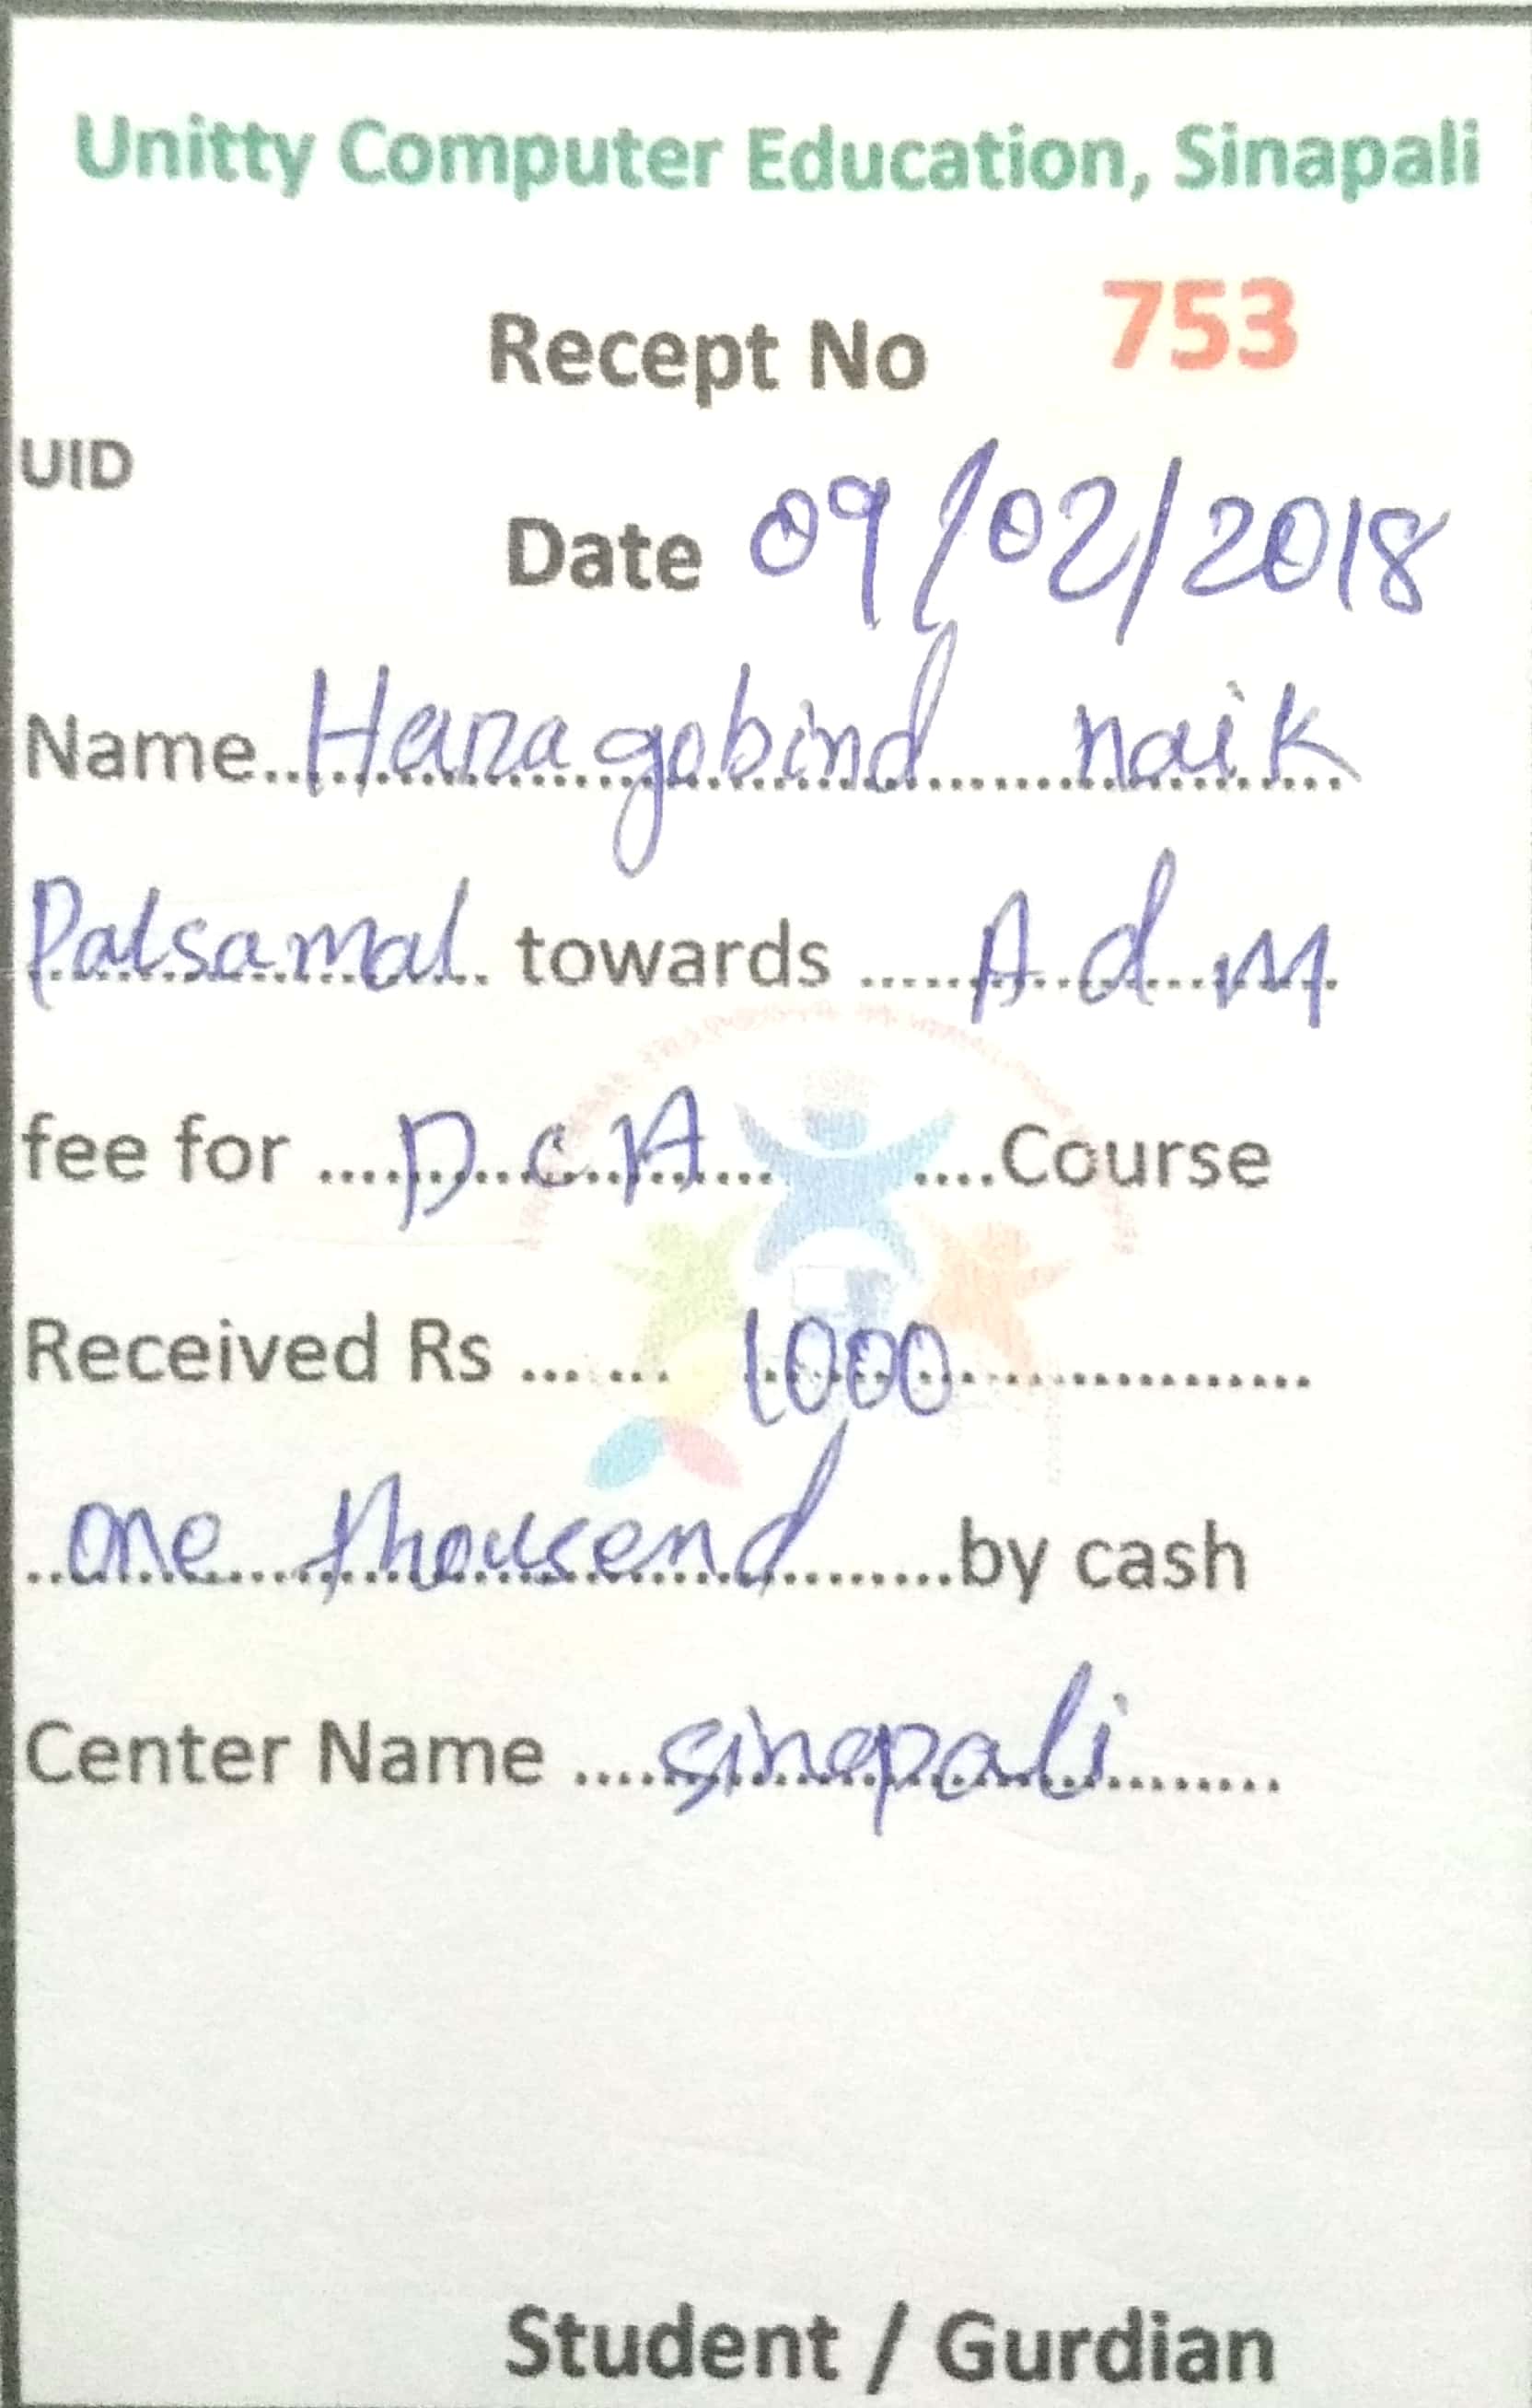 Unitty Computer Education, Sinapali
Recept No 753
UID
Date 09/02/2018
Name Haragobind naik
Palsamal towards A d M
fee for D C A Course
Received Rs 1000
one thousend by cash
Center Name sinapali
Student / Gurdian